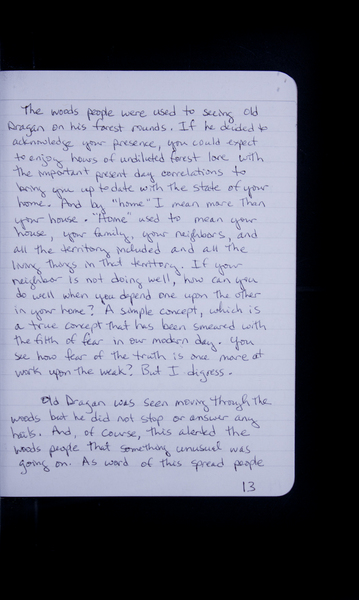 The woods people were used to seeing Old
Dragan on his forest rounds. If he decided to
acknowledge your presence, you could expect
to enjoy hours of undiluted forest lore with
the important present day correlations to
bring you up to date with the state of your
home. And by "home" I mean more than
your house. "Home" used to mean your
house, your family, your neighbors, and
all the territory included and all the
living things in that territory. If your
neighbor is not doing well, how can you
do well when you depend one upon the other
in your home? A simple concept, which is
a true concept that has been smeared with
the filth of fear in our modern day. You
see how fear of the truth is once more at
work upon the weak? But I digress.
Old Dragan was seen moving through the
woods but he did not stop or answer any
hails. And, of course, this alerted the
woods people that something unusual was
going on. As word of this spread people
13